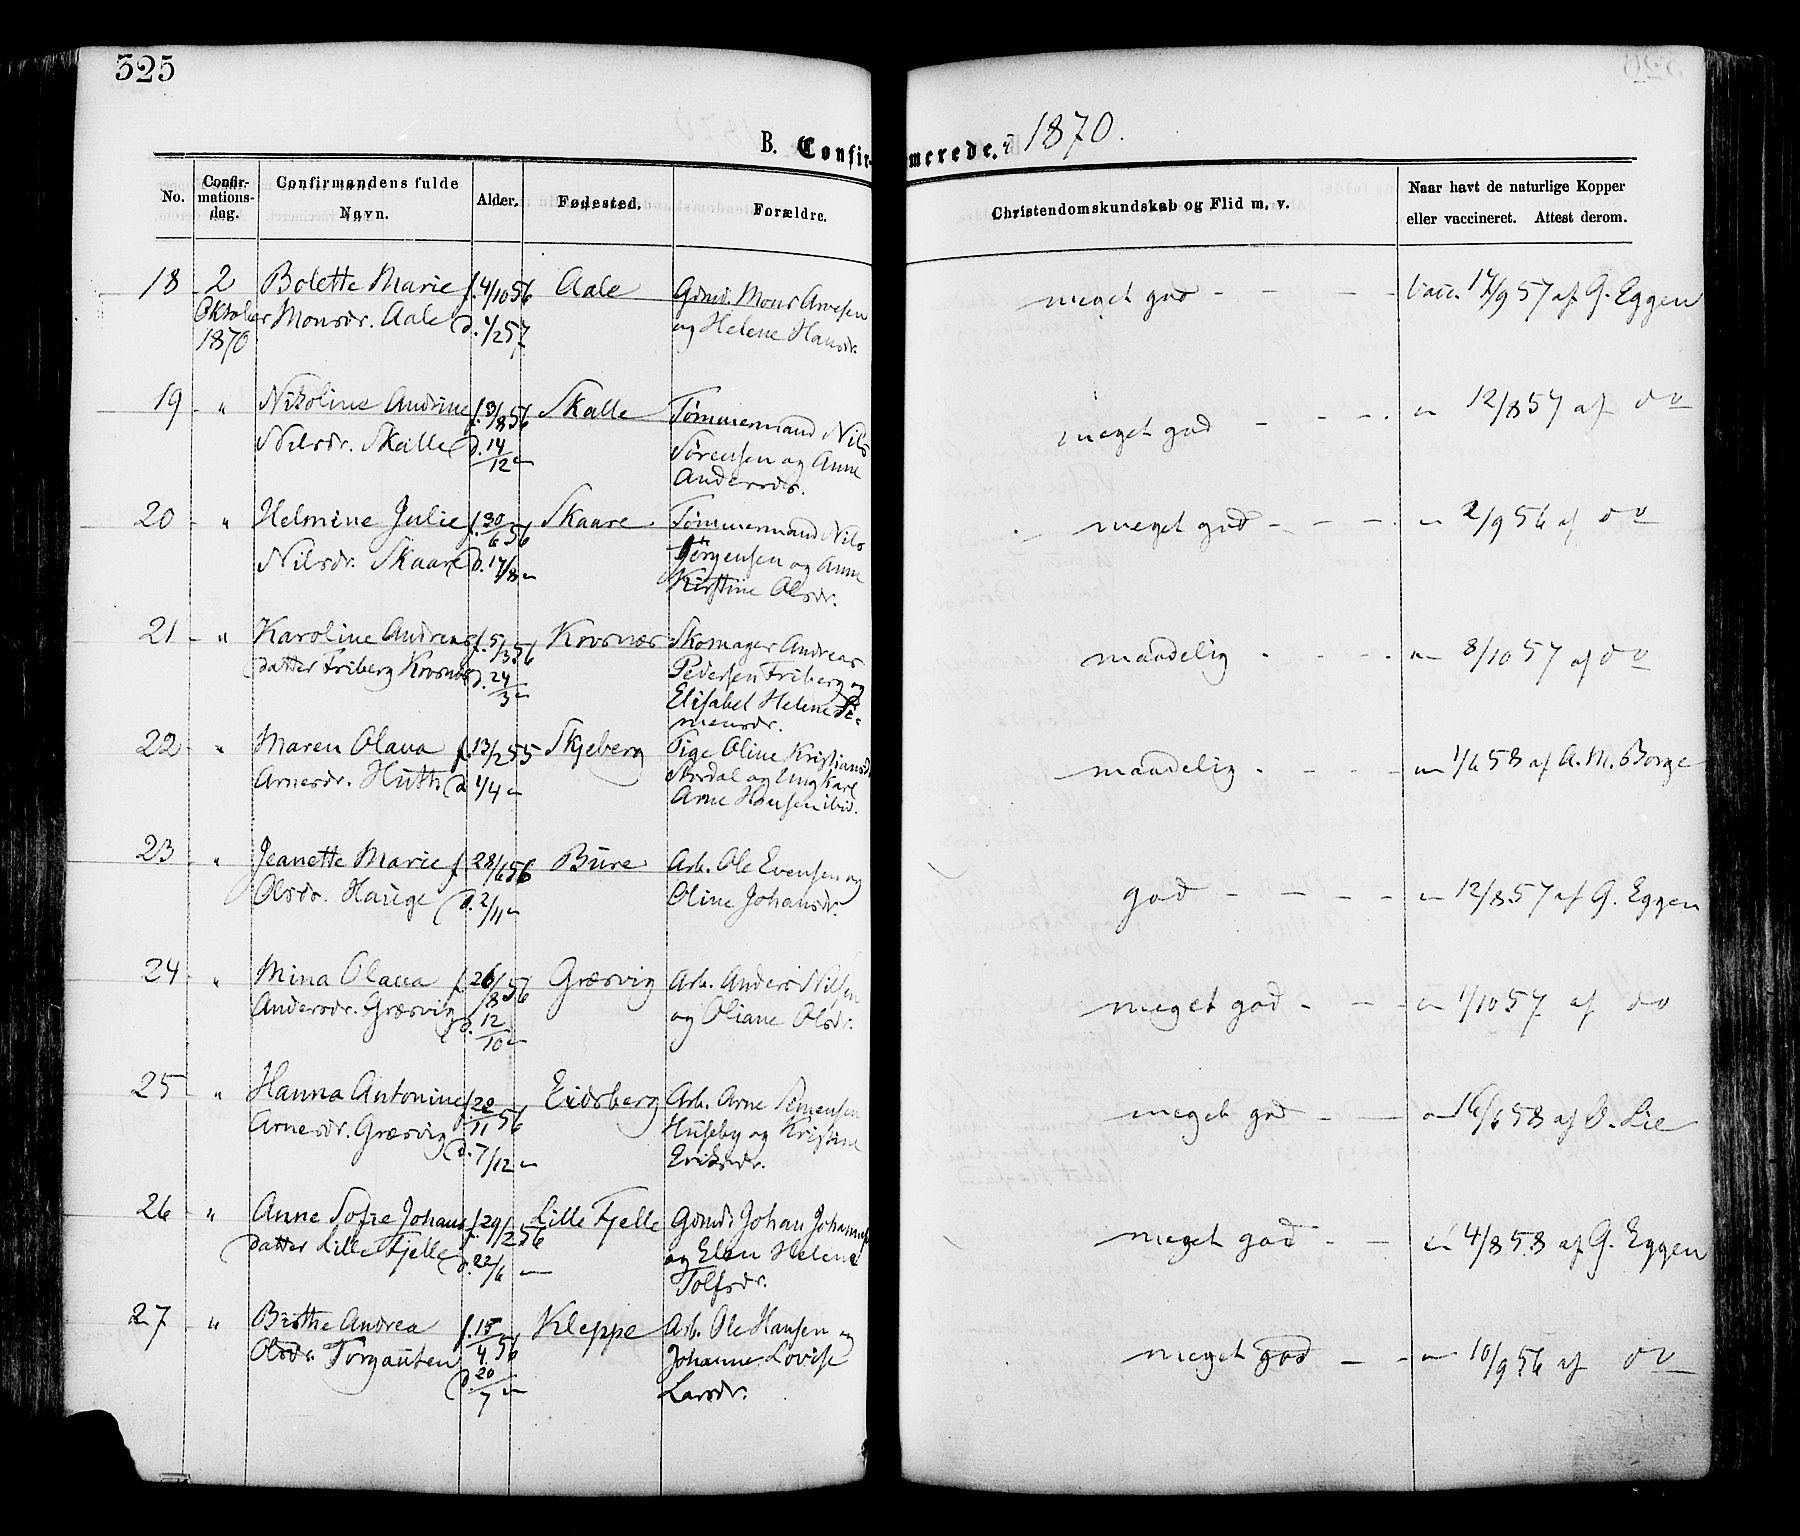 325
B. Confirmerede. i 1870.
No. Confirmationsdag. Confirmandens fulde Navn. Alder. Fødested. Forældre. Christendomskundskab og Flid m. v. Naar havt de naturlige Kopper eller vaccineret. Attest derom.
18 2 Bolette Marie f. 4/10 56 Aale Gdmd. Mons Arvesen meget god - - - - vacc. 14/9 57 af G. Eggen
Oktober Monsdr. Aale d. 1/2 57 og Helene Hansdr.
1870
19 " Nikoline Andrine f. 3/8 56 Skalle Tømmermand Nils meget god - - - " 12/8 57 af do
Nilsdr. Skalle d. 14/12 " Sørensen og Anne
Andersdr.
20 " Helmine Julie f. 30/6 56 Skaare Tømmermand Nils meget god - - - - " 2/9 56 af do
Nilsdr. Skaare d. 17/8 " Jørgensen og Anne
Kirstine Olsdr.
21 " Karoline Andreas f. 5/3 56 Krosnæs Skomager Andreas maadelig - - - - " 8/10 57 af do
datter Friberg Krosnæs d. 24/3 " Pedersen Friberg og
Elisabet Helene Si-
mensdr.
22 " Maren Olava f. 13/2 55 Skjeberg Pige Oline Kristiansd. maadelig - - - - " 1/6 58 af A. M. Borge
Arnesdr. Hutt d. 1/4 " og Ungkarl
Arne Hansen ibid.
23 " Jeanette Marie f. 28/6 56 Bure Arb. Ole Evensen og god - - - - " 12/8 57 af G. Eggen
Olsdr. Hauge d. 2/11 " Oline Johansdr.
24 " Mina Olava f. 26/8 56 Græsvig Arb. Anders Nilsen meget god - - - " 1/10 57 af do
Andersdr. Græsvig d. 12/10 " og Oliane Olsdr.
25 " Hanna Antonine f. 22/11 56 Eidsberg Arb. Arne Simensen meget god - - " 16/6 58 af O. Lie
Arnesdr. Græsvig d. 7/12 " Huseby og Kristine
Eriksdr.
26 " Anne Sofie Johans f. 29/2 56 Lille Fjelle Gdmd. Johan Johannes meget god - - " 4/8 58 af G. Eggen
datter Lille Fjelle d. 22/6 " og Elen Helene
Tolfsdr.
27 " Birthe Andrea f. 15/4 56 Kleppe Arb. Ole Hansen og meget god - - " 10/9 56 af do
Olsdr. Torgauten d. 20/7 " Johanne Lovise
Larsdr.